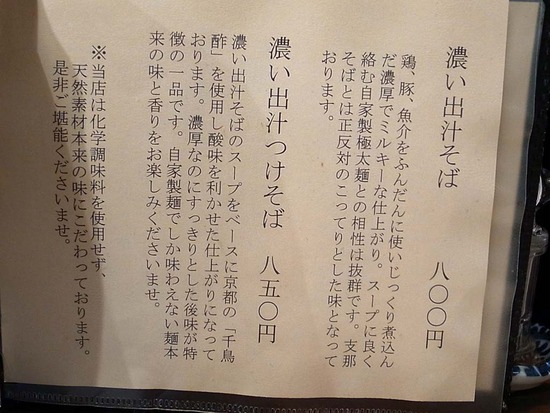 濃い出汁そば 八〇〇円
鶏、豚、魚介をふんだんに使いじっくり煮込ん
だ濃厚でミルキーな仕上がり。スープに良く
絡む自家製極太麺との相性は抜群です。支那
そばとは正反対のこってりとした味となって
おります。
濃い出汁つけそば 八五〇円
濃い出汁そばのスープをベースに京都の「千鳥
酢」を使用し酸味を利かせた仕上がりになって
おります。濃厚なのにすっきりとした後味が特
徴の一品です。自家製麺でしか味わえない麺本
来の味と香りをお楽しみくださいませ。
※当店は化学調味料を使用せず、
天然素材本来の味にこだわっております。
是非ご堪能くださいませ。